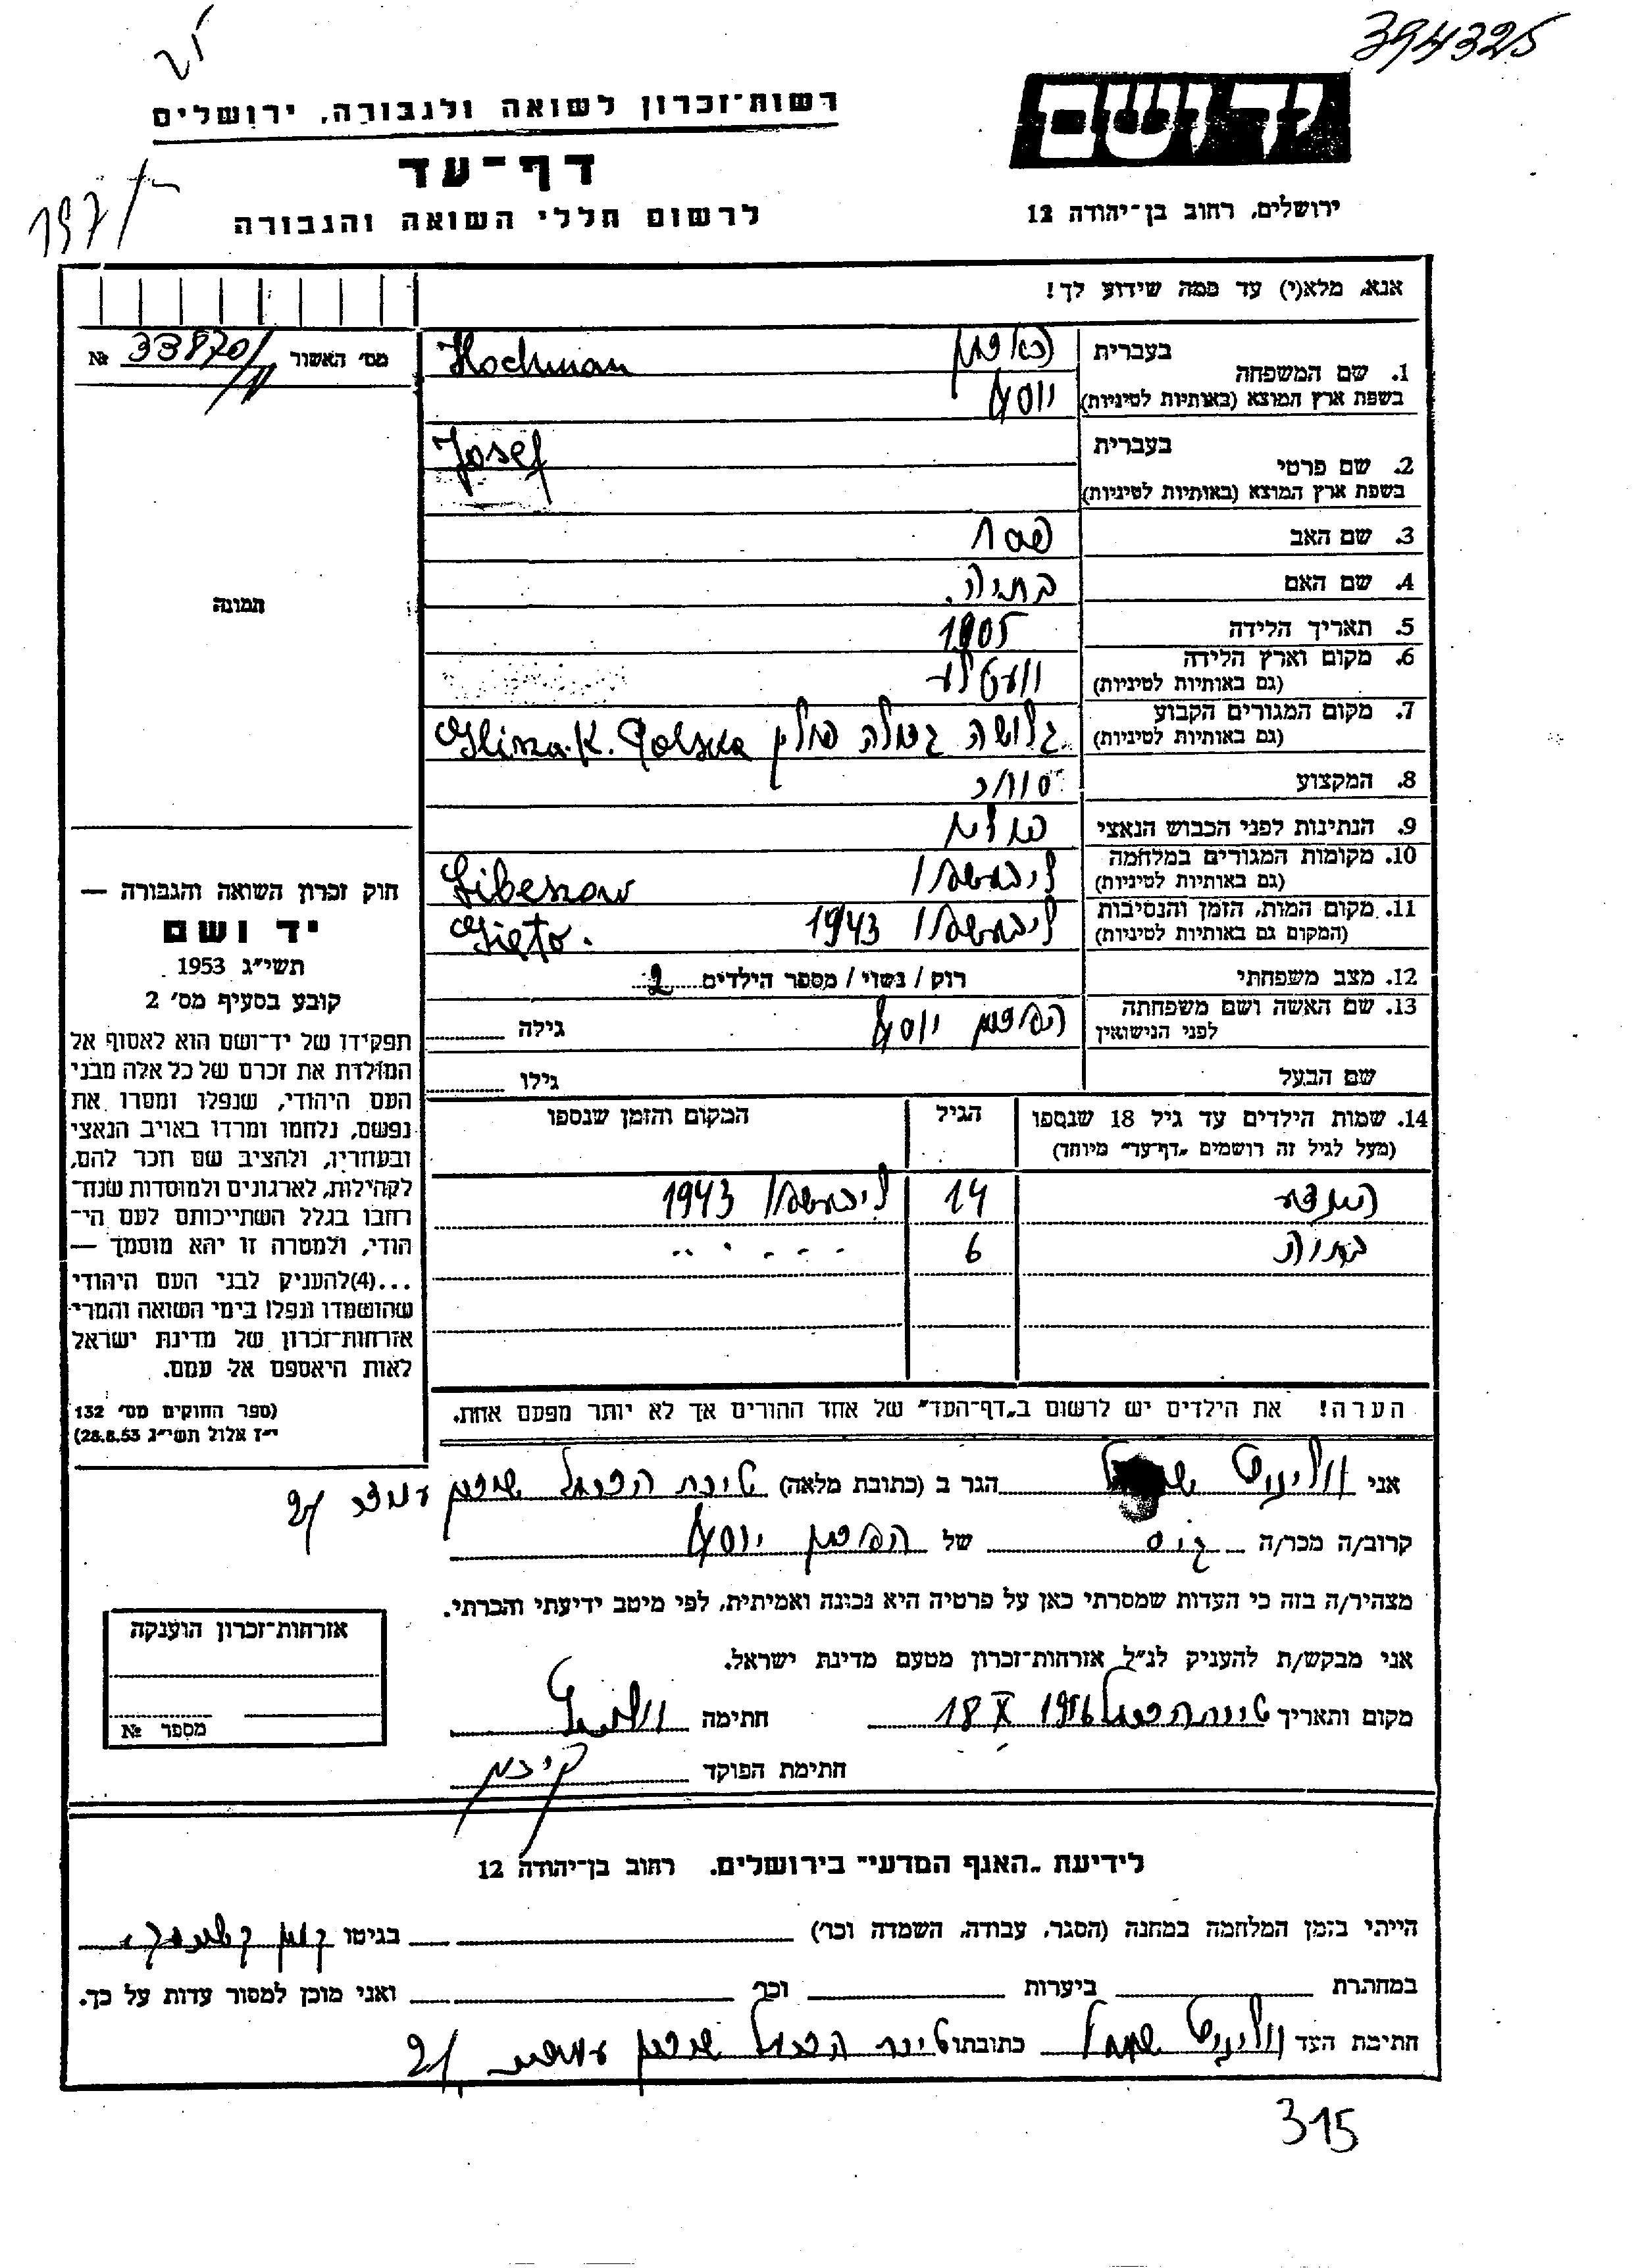 394325
רשות־זכרון לשואה ולגבורה, ירושלים
יד ושם
דף־עד
197
לרשום חללי השואה והגבורה
ירושלים, רחוב בן־יהודה 12
אנא, מלא(י) עד כמה שידוע לך!
מס׳ האשור 33870 №
בעברית
1. שם המשפחה Hochman
בשפת ארץ המוצא (באותיות לטיניות) יוסף
בעברית
2. שם פרטי Josef
בשפת ארץ המוצא (באותיות לטיניות)
3. שם האב
4. שם האם בתיה.
5. תאריך הלידה 1905
6. מקום וארץ הלידה
(גם באותיות לטיניות)
7. מקום המגורים הקבוע פולין K. Polska
(גם באותיות לטיניות)
8. המקצוע סוחר
9. הנתינות לפני הכבוש הנאצי
10. מקומות המגורים במלחמה Libeszow
(גם באותיות לטיניות)
11. מקום המות, הזמן והנסיבות 1943 Gieto.
(המקום גם באותיות לטיניות)
12. מצב משפחתי רוק / נשוי / מספר הילדים 2
13. שם האשה ושם משפחתה הוכמן יוסף גילה
לפני הנישואין
שם הבעל גילו
14. שמות הילדים עד גיל 18 שנספו הגיל המקום והזמן שנספו
(מעל לגיל זה רושמים „דף־עד״ מיוחד)
14 1943
בתיה 6
תמונה
חוק זכרון השואה והגבורה —
יד ושם
תשי״ג 1953
קובע בסעיף מס׳ 2
תפקידו של יד־ושם הוא לאסוף אל
המולדת את זכרם של כל אלה מבני
העם היהודי, שנפלו ומסרו את
נפשם, נלחמו ומרדו באויב הנאצי
ובעוזריו, ולהציב שם וזכר להם,
לקהילות, לארגונים ולמוסדות שנח־
רבו בגלל השתייכותם לעם הי־
הודי, ולמטרה זו יהא מוסמך —
...(4)להעניק לבני העם היהודי
שהושמדו ונפלו בימי השואה והמרי
אזרחות־זכרון של מדינת ישראל
לאות היאספם אל עמם.
(ספר החוקים מס׳ 132
י״ז אלול תשי״ג 28.8.53)
הערה! את הילדים יש לרשום ב„דף־העד״ של אחד ההורים אך לא יותר מפעם אחת.
אני הגר ב (כתובת מלאה) טירת הכרמל שיכון 21
קרוב/ה מכר/ה גיס של הוכמן יוסף
מצהיר/ה בזה כי העדות שמסרתי כאן על פרטיה היא נכונה ואמיתית, לפי מיטב ידיעתי והכרתי.
אני מבקש/ת להעניק לנ״ל אזרחות־זכרון מטעם מדינת ישראל.
מקום ותאריך טירת הכרמל 18 X 1956 חתימה
חתימת הפוקד
אזרחות־זכרון הוענקה
מספר №
לידיעת „האגף המדעי״ בירושלים, רחוב בן־יהודה 12
הייתי בזמן המלחמה במחנה (הסגר, עבודה, השמדה וכו׳) בגיטו
במחתרת ביערות וכו׳ ואני מוכן למסור עדות על כך.
חתימת העד כתובתו טירת הכרמל שיכון 21
315